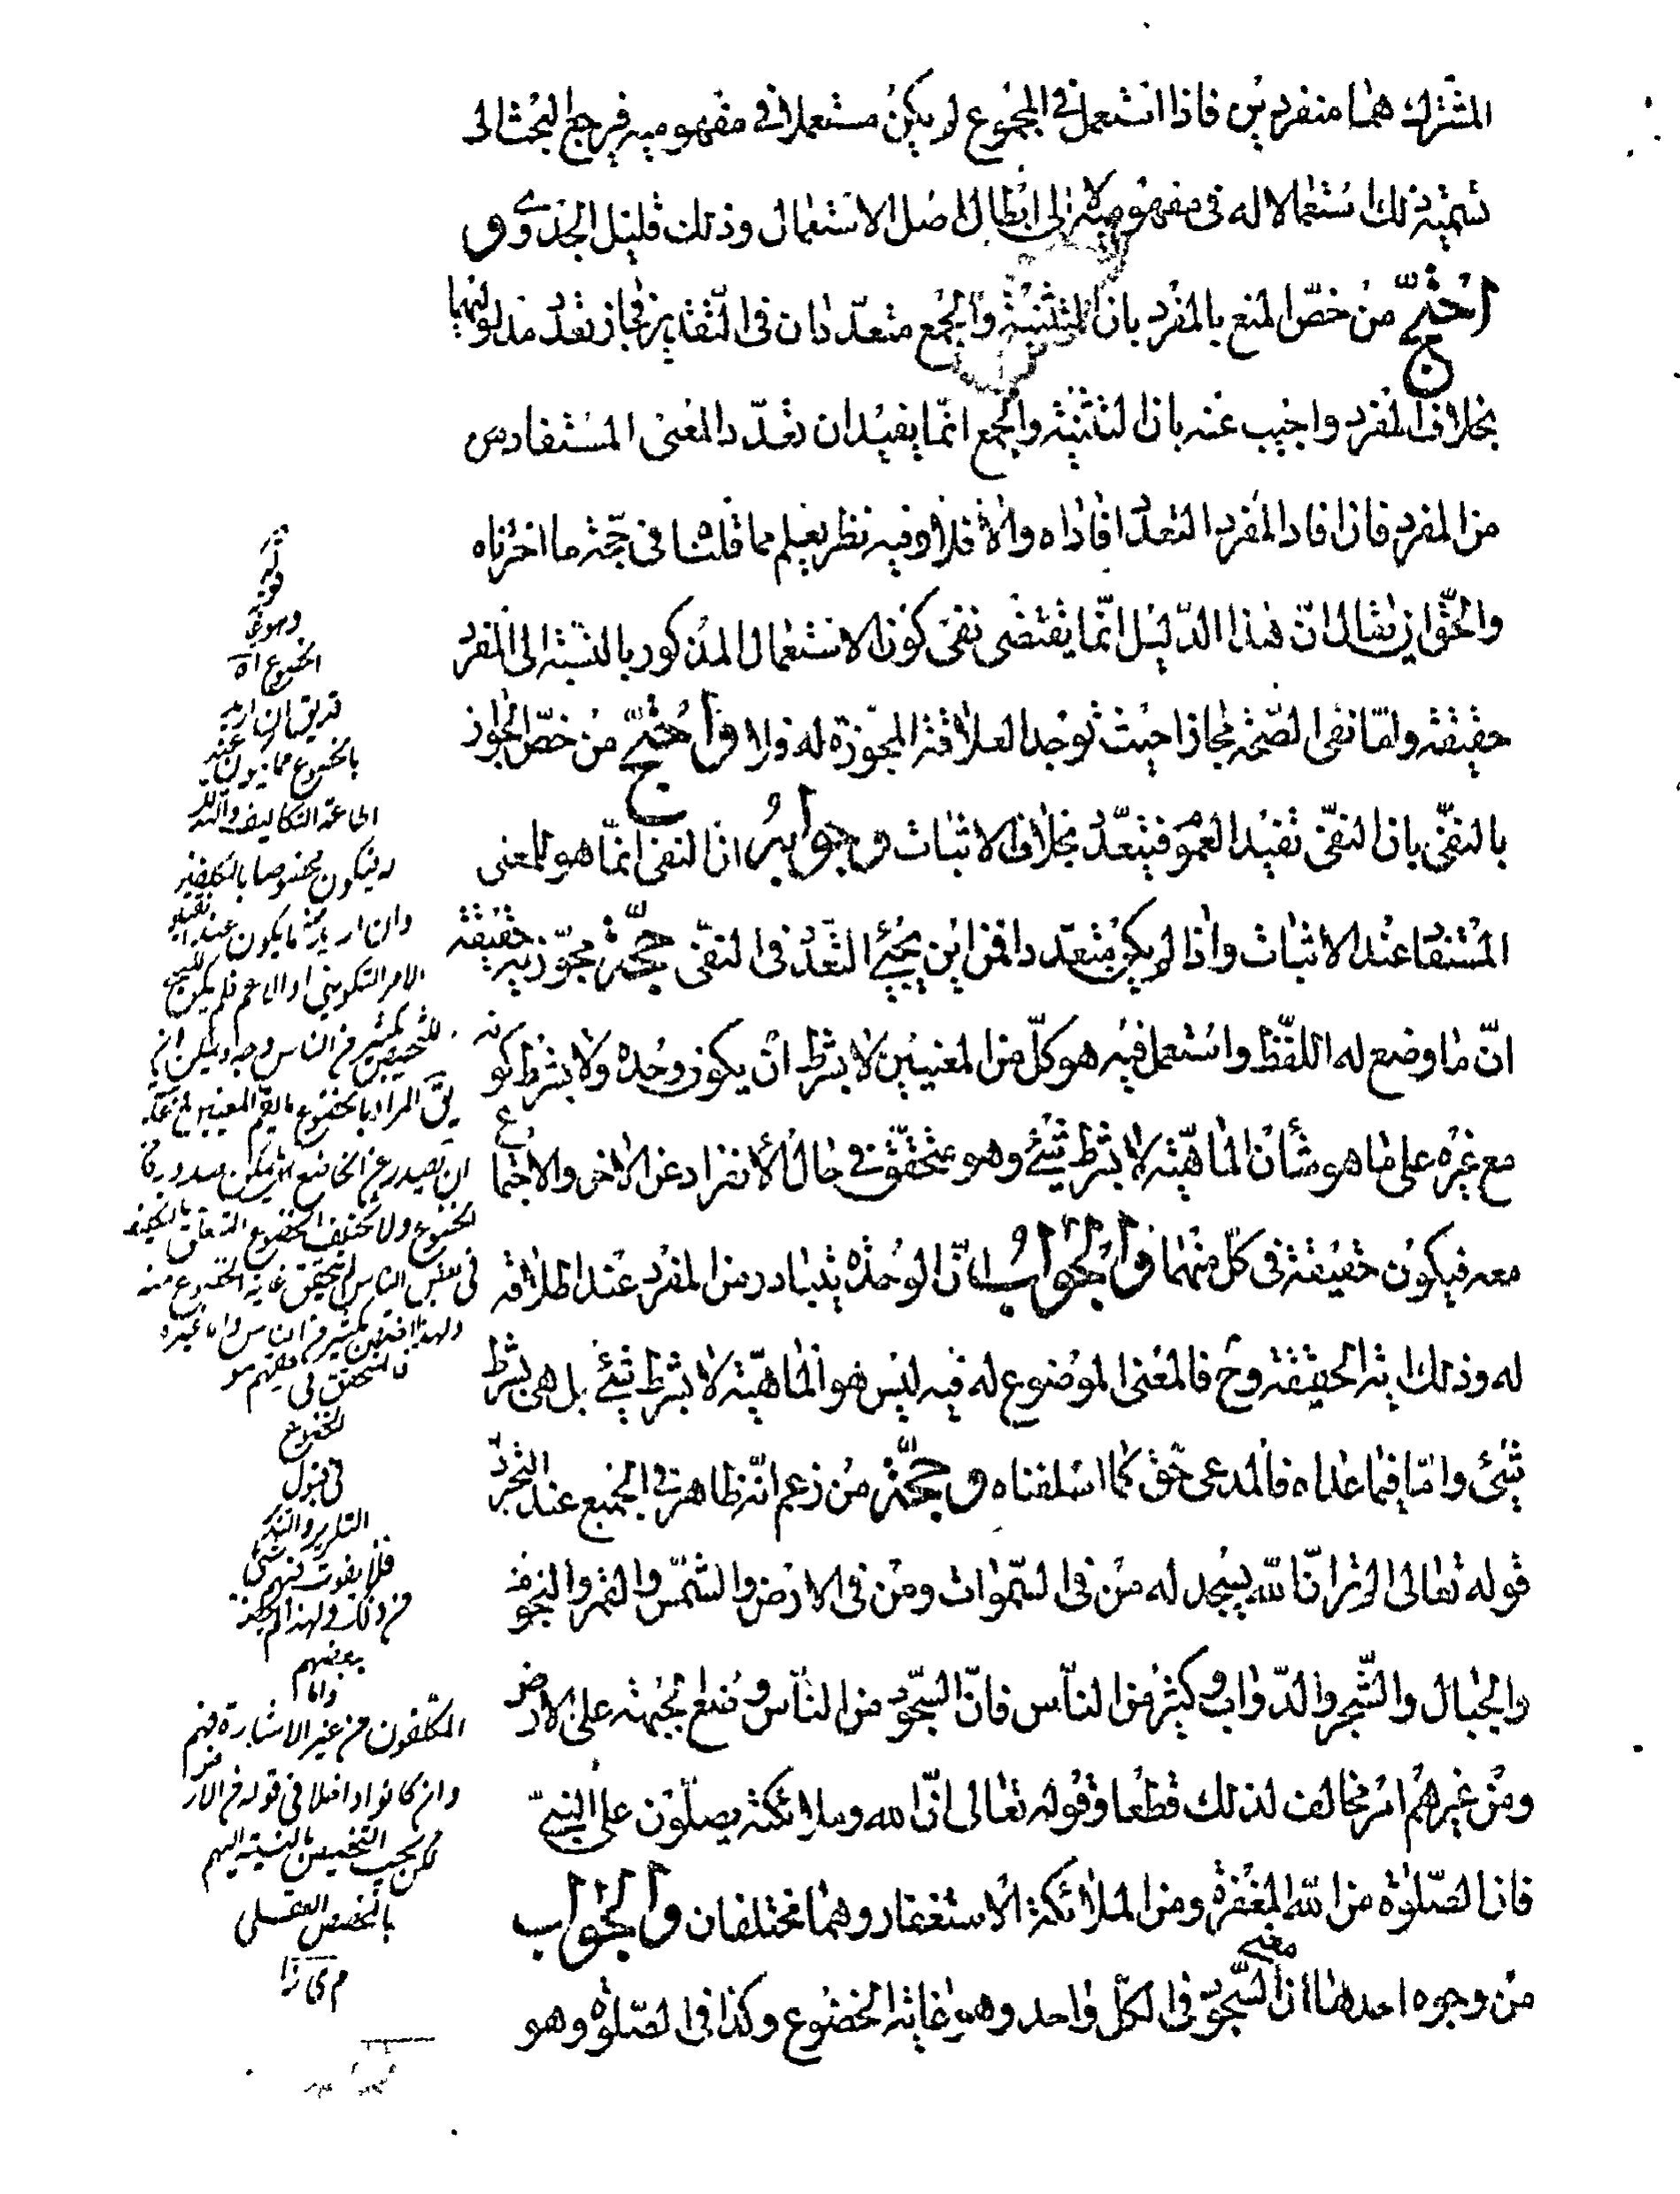 المشترك هما منفردين فاذا استعمل في المجموع لم يكن مستعملا في مفهوميه فيرجع البحث الى
تسمية ذلك استعمالا له في مفهوميه لا الى ابطال اصل الاستعمال وذلك قليل الجدوى و
احتج من خصّ المنع بالمفرد بان التثنية والجمع متعدّدان في التقدير فجاز تعدد مدلوليهما
بخلاف المفرد واجيب عنه بان التثنية والجمع انّما يفيدان تعدّد المعنى المستفاد من
من المفرد فان افاد المفرد التعدد افاداه والا فلا وفيه نظر يعلم مما قلناه في حجّة ما اخترناه
والحقّ ان يقال انّ هذا الدّليل انّما يقتضى نفى كون الاستعمال المذكور بالنسبة الى المفرد
حقيقة وامّا نفى الصّحة مجازا حيث توجد العلاقة المجوّزة له فلا واحتجّ من خصّ الجواز
بالنفّى بان النفّى تفيد العموم فيتعدّد بخلاف الاثبات وجوابه ان النفى انّما هو للمعنى
المستفاد عند الاثبات واذا لم يكن متعدّدا فمن اين يجئ التعدد في النفّى حجّة مجوّزيه حقيقة
انّ ما وضع له اللّفظ واستعمل فيه هو كلّ من المعنيين لا بشرط ان يكون وحده ولا بشرط كونه
مع غيره على ما هو شأن الماهيّة لا بشرط شئ وهو متحقّق في حال الانفراد عن الاخر والاجتماع
معه فيكون حقيقة في كلّ منهما والجواب انّ الوحدة يتبادر من المفرد عند اطلاقه
له وذلك اية الحقيقة وح فالمعنى الموضوع له فيه ليس هو الماهيّة لا بشرط شئ بل هى بشرط
شئ وامّا فيما عداه فالمدعى حق كما اسلفناه وحجّة من زعم انّه ظاهر في الجميع عند التجرد
قوله تعالى الم تر انّ الله يسجد له من في السّموات ومن في الارض والشّمس والقمر والنجوم
والجبال والشّجر والدّواب وكثير من النّاس فانّ السّجود من النّاس وضع الجبهة على الارض
ومن غيرهم امر مخالف لذلك قطعا وقوله تعالى انّ الله وملائكته يصلّون على النبيّ
فان الصّلوة من الله المغفرة ومن الملائكة الاستغفار وهما مختلفان والجواب
من وجوه احدها ان معنى السّجود في الكلّ واحد وهو غاية الخضوع وكذا في الصّلوة وهو
قوله
وهو غاية
الخضوع اه
قد يق ان اريد
بالخضوع ما يكون عند
اطاعة التكاليف
فيكون مخصوصا بالمكلفين
وان اريد به ما يكون عند
الامر التكويني او الاعم فلم يكن
للتخصيص بكثير من الناس وجه ويمكن ان
يق المراد بالخضوع ما يعم المعنيين
ان يصدر عن الخاضع
الخضوع ولا تخلف الخضوع المتعلق بالتكليف
في بعض الناس لم يتحقق غاية الخضوع منه
ولهذا اختص بكثير من الناس واما غيره
فالمتحقق في حقهم هو
الخضوع
في قبول
فلا يفوت منهم شئ
من ذلك ولهذا لم يختص
ببعضهم
واما
المكلفون من غير الاشارة فهم
وان كانوا داخلا في قوله من في الارض
لكن يجب التخصيص بالنسبة اليهم
بالمخصص العقلى